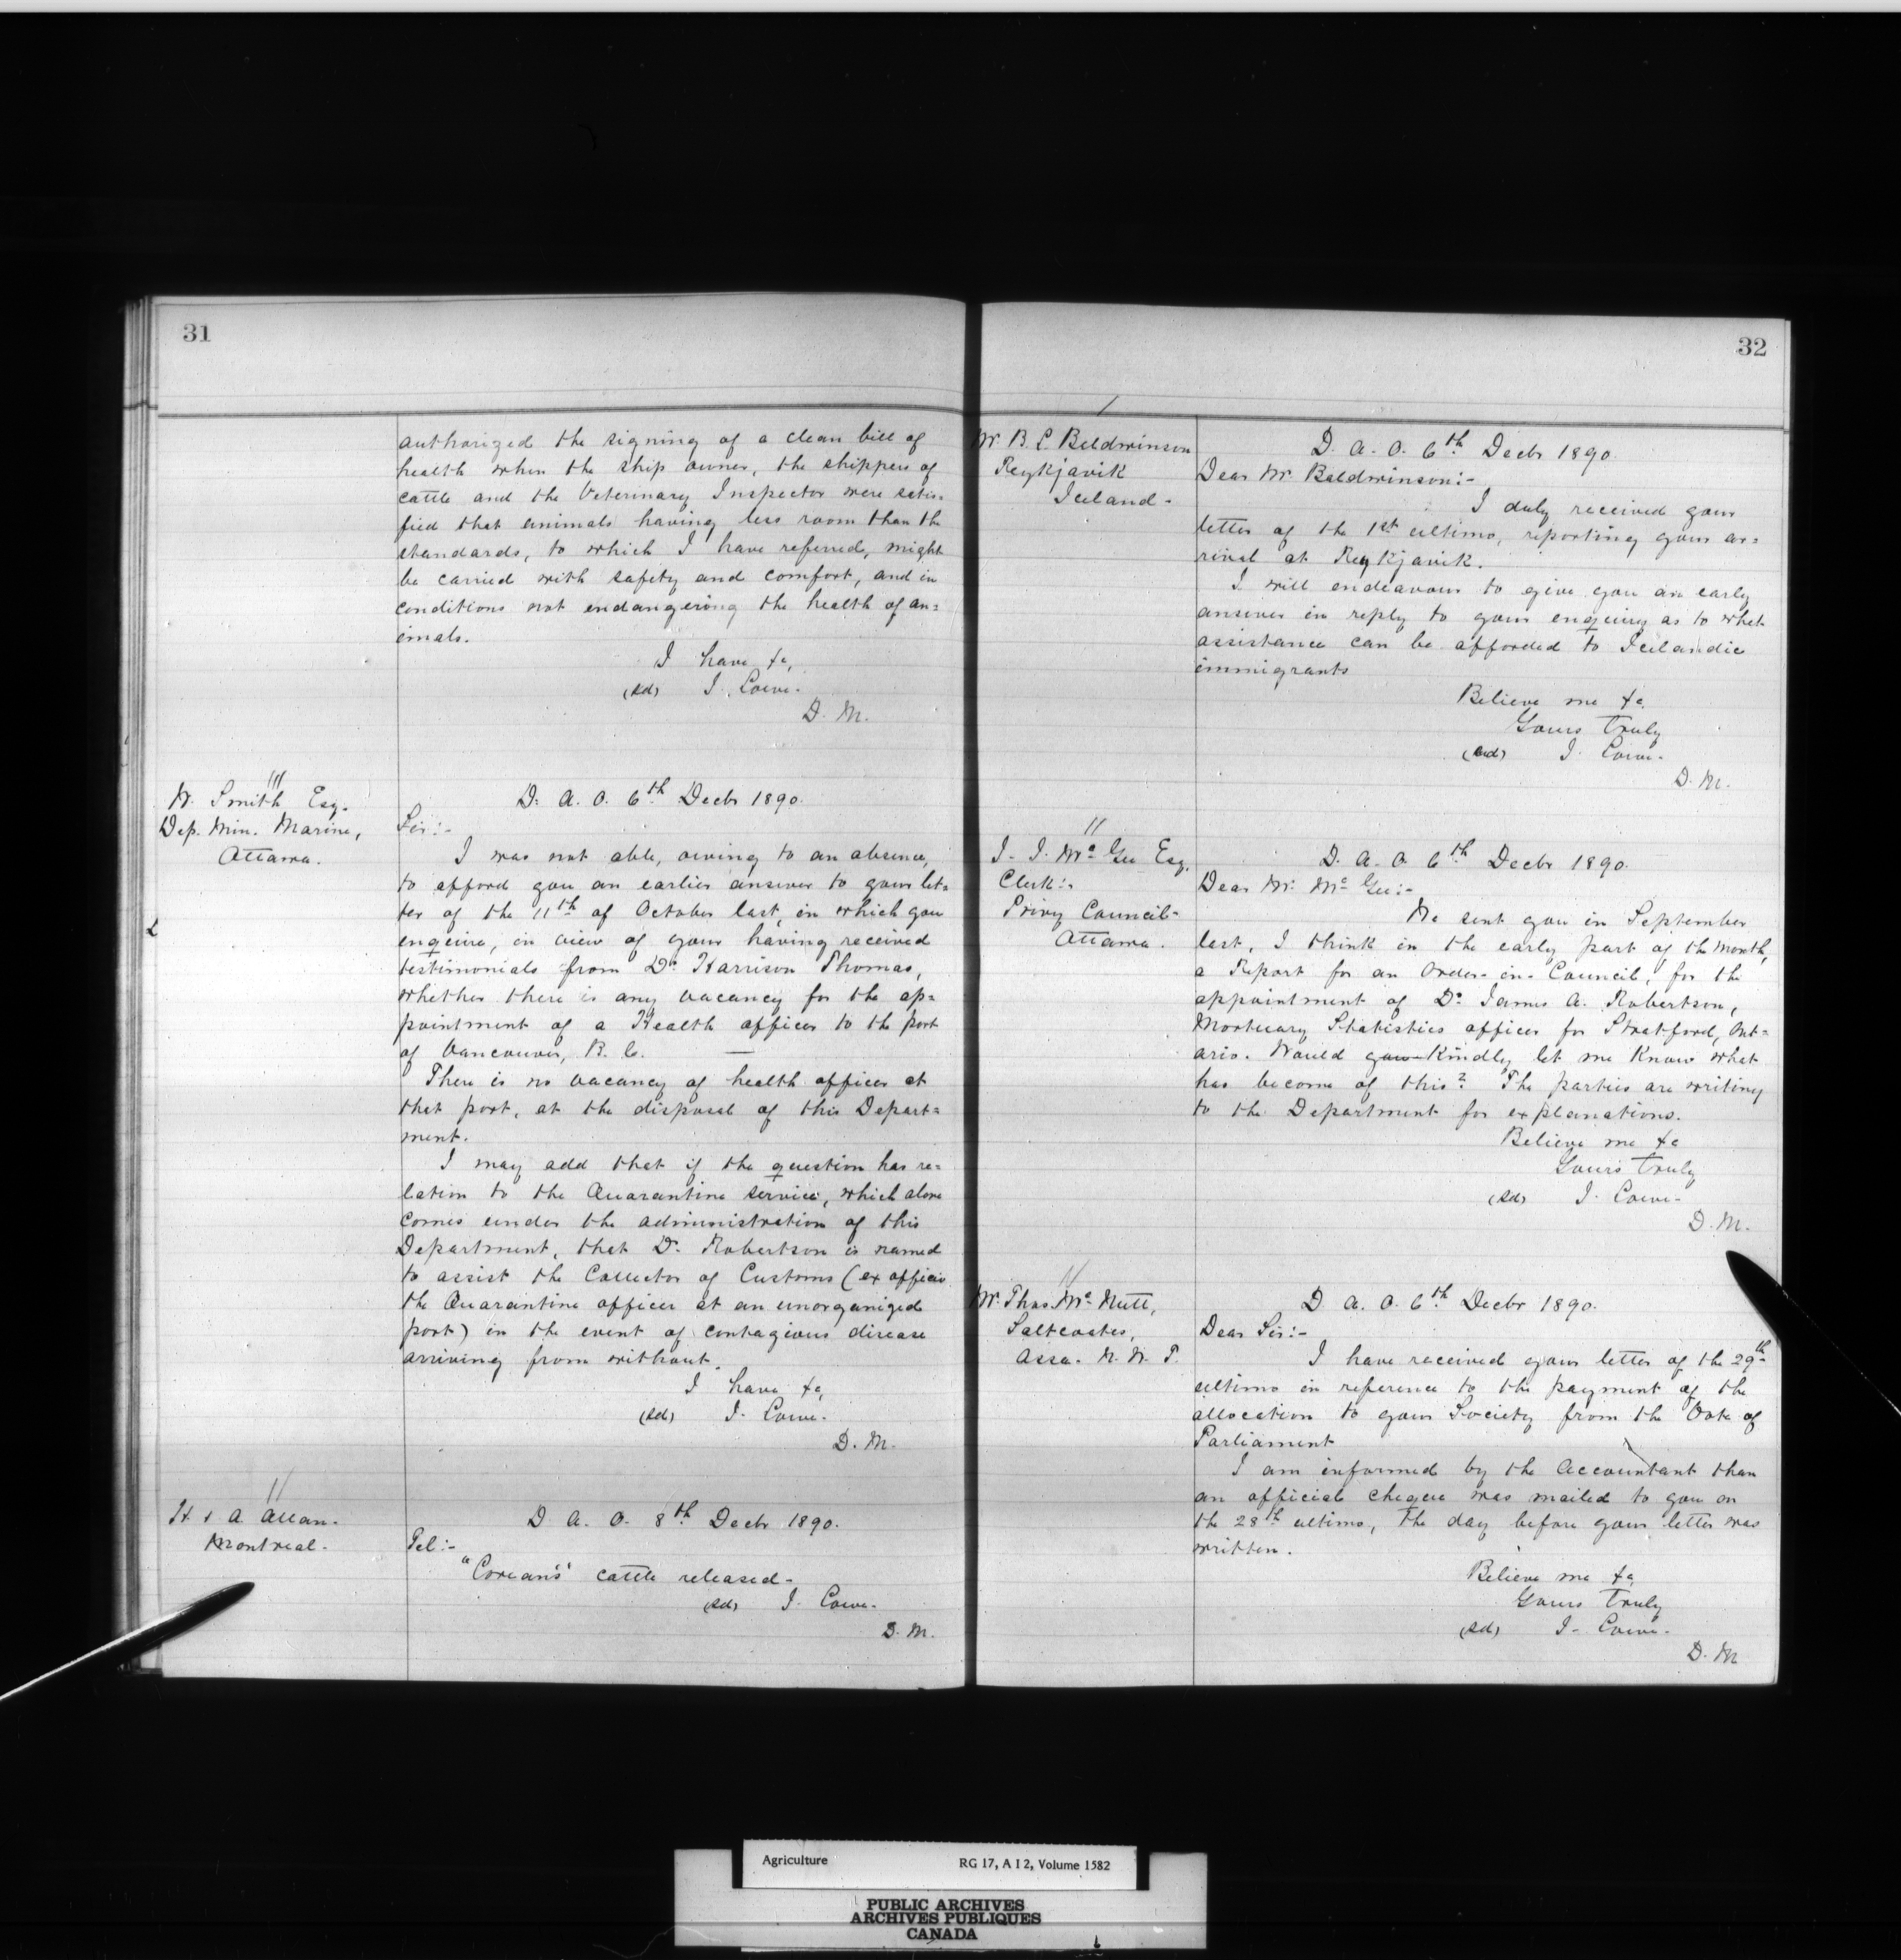 31
authorized the signing of a clean bill of
health when the ship owner, the shippers of
cattle and the Veterinary Inspector were satis=
fied that animals having less room than the
standards, to which I have referred, might
be carried with safety and comfort, and in
conditions not endangering the health of an=
imals.
I have &c,
(sd) J. Lowe.
D. M.
W. Smith Esq.
Dep. Min. Marine,
Ottawa.
D. A. O. 6th Decbr 1890.
Sir:-
I was not able, owing to an absence,
to afford you an earlier answer to your let=
ter of the 11th of October last, in which you
enquire, in view of your having received
testimonials from Dr Harrison Thomas,
whether there is any vacancy for the ap=
pointment of a Health officer to the port
of Vancouver, B. C. —
There is no vacancy of health officer at
that port, at the disposal of this Depart=
ment.
I may add that if the question has re=
lation to the Quarantine service, which alone
comes under the administration of this
Department, that Dr. Robertson is named
to assist the Collector of Customs (ex officio
the Quarantine officer at an unorganized
port) in the event of contagious disease
arriving from without.
I have &c,
(sd) J. Lowe.
D. M.
H & A. Allan.
Montreal.
D. A. O. 8th Decbr 1890.
Tel:-
"Corean's" cattle released-
(sd) J. Lowe.
D. M.
32
Mr. B. L. Baldwinson
Reykjavik
Iceland-
D. A. O. 6th Decbr 1890.
Dear Mr Baldwinson:-
I duly received your
letter of the 1st ultimo, reporting your ar=
rival at Reykjavik.
I will endeavour to give you an early
answer in reply to your enquiry as to what
assistance can be afforded to Icelandic
immigrants
Believe me &c.
Yours Truly
(sd) J. Lowe.
D. M.
J. J. Mc Gee Esq.
Clerk:,
Privy Council-
Ottawa.
D. A. O. 6th Decbr 1890.
Dear Mr. Mc Gee:-
We sent you in September
last, I think in the early part of the month,
a Report for an Order-in-Council, for the
appointment of Dr James A. Robertson,
Mortuary Statistics officer for Stratford, Ont=
ario. Would you Kindly let me Know what
has become of this? The parties are writing
to the Department for explanations.
Believe me &c
Yours Truly
(sd) J. Lowe-
D. M.
Mr. Thos Mc Nutt,
Saltcoates,
Assa. N. W. T.
D. A. O. 6th Decbr 1890.
Dear Sir:-
I have received your letter of the 29th
ultimo in reference to the payment of the
allocation to your Society from the Vote of
Parliament
I am informed by the Accountant than
an official cheque was mailed to you on
the 28th ultimo, The day before your letter was
written.
Believe me &c,
Yours Truly
(sd) J- Lowe-
D. M
Agriculture RG 17, A I 2, Volume 1582
PUBLIC ARCHIVES
ARCHIVES PUBLIQUES
CANADA